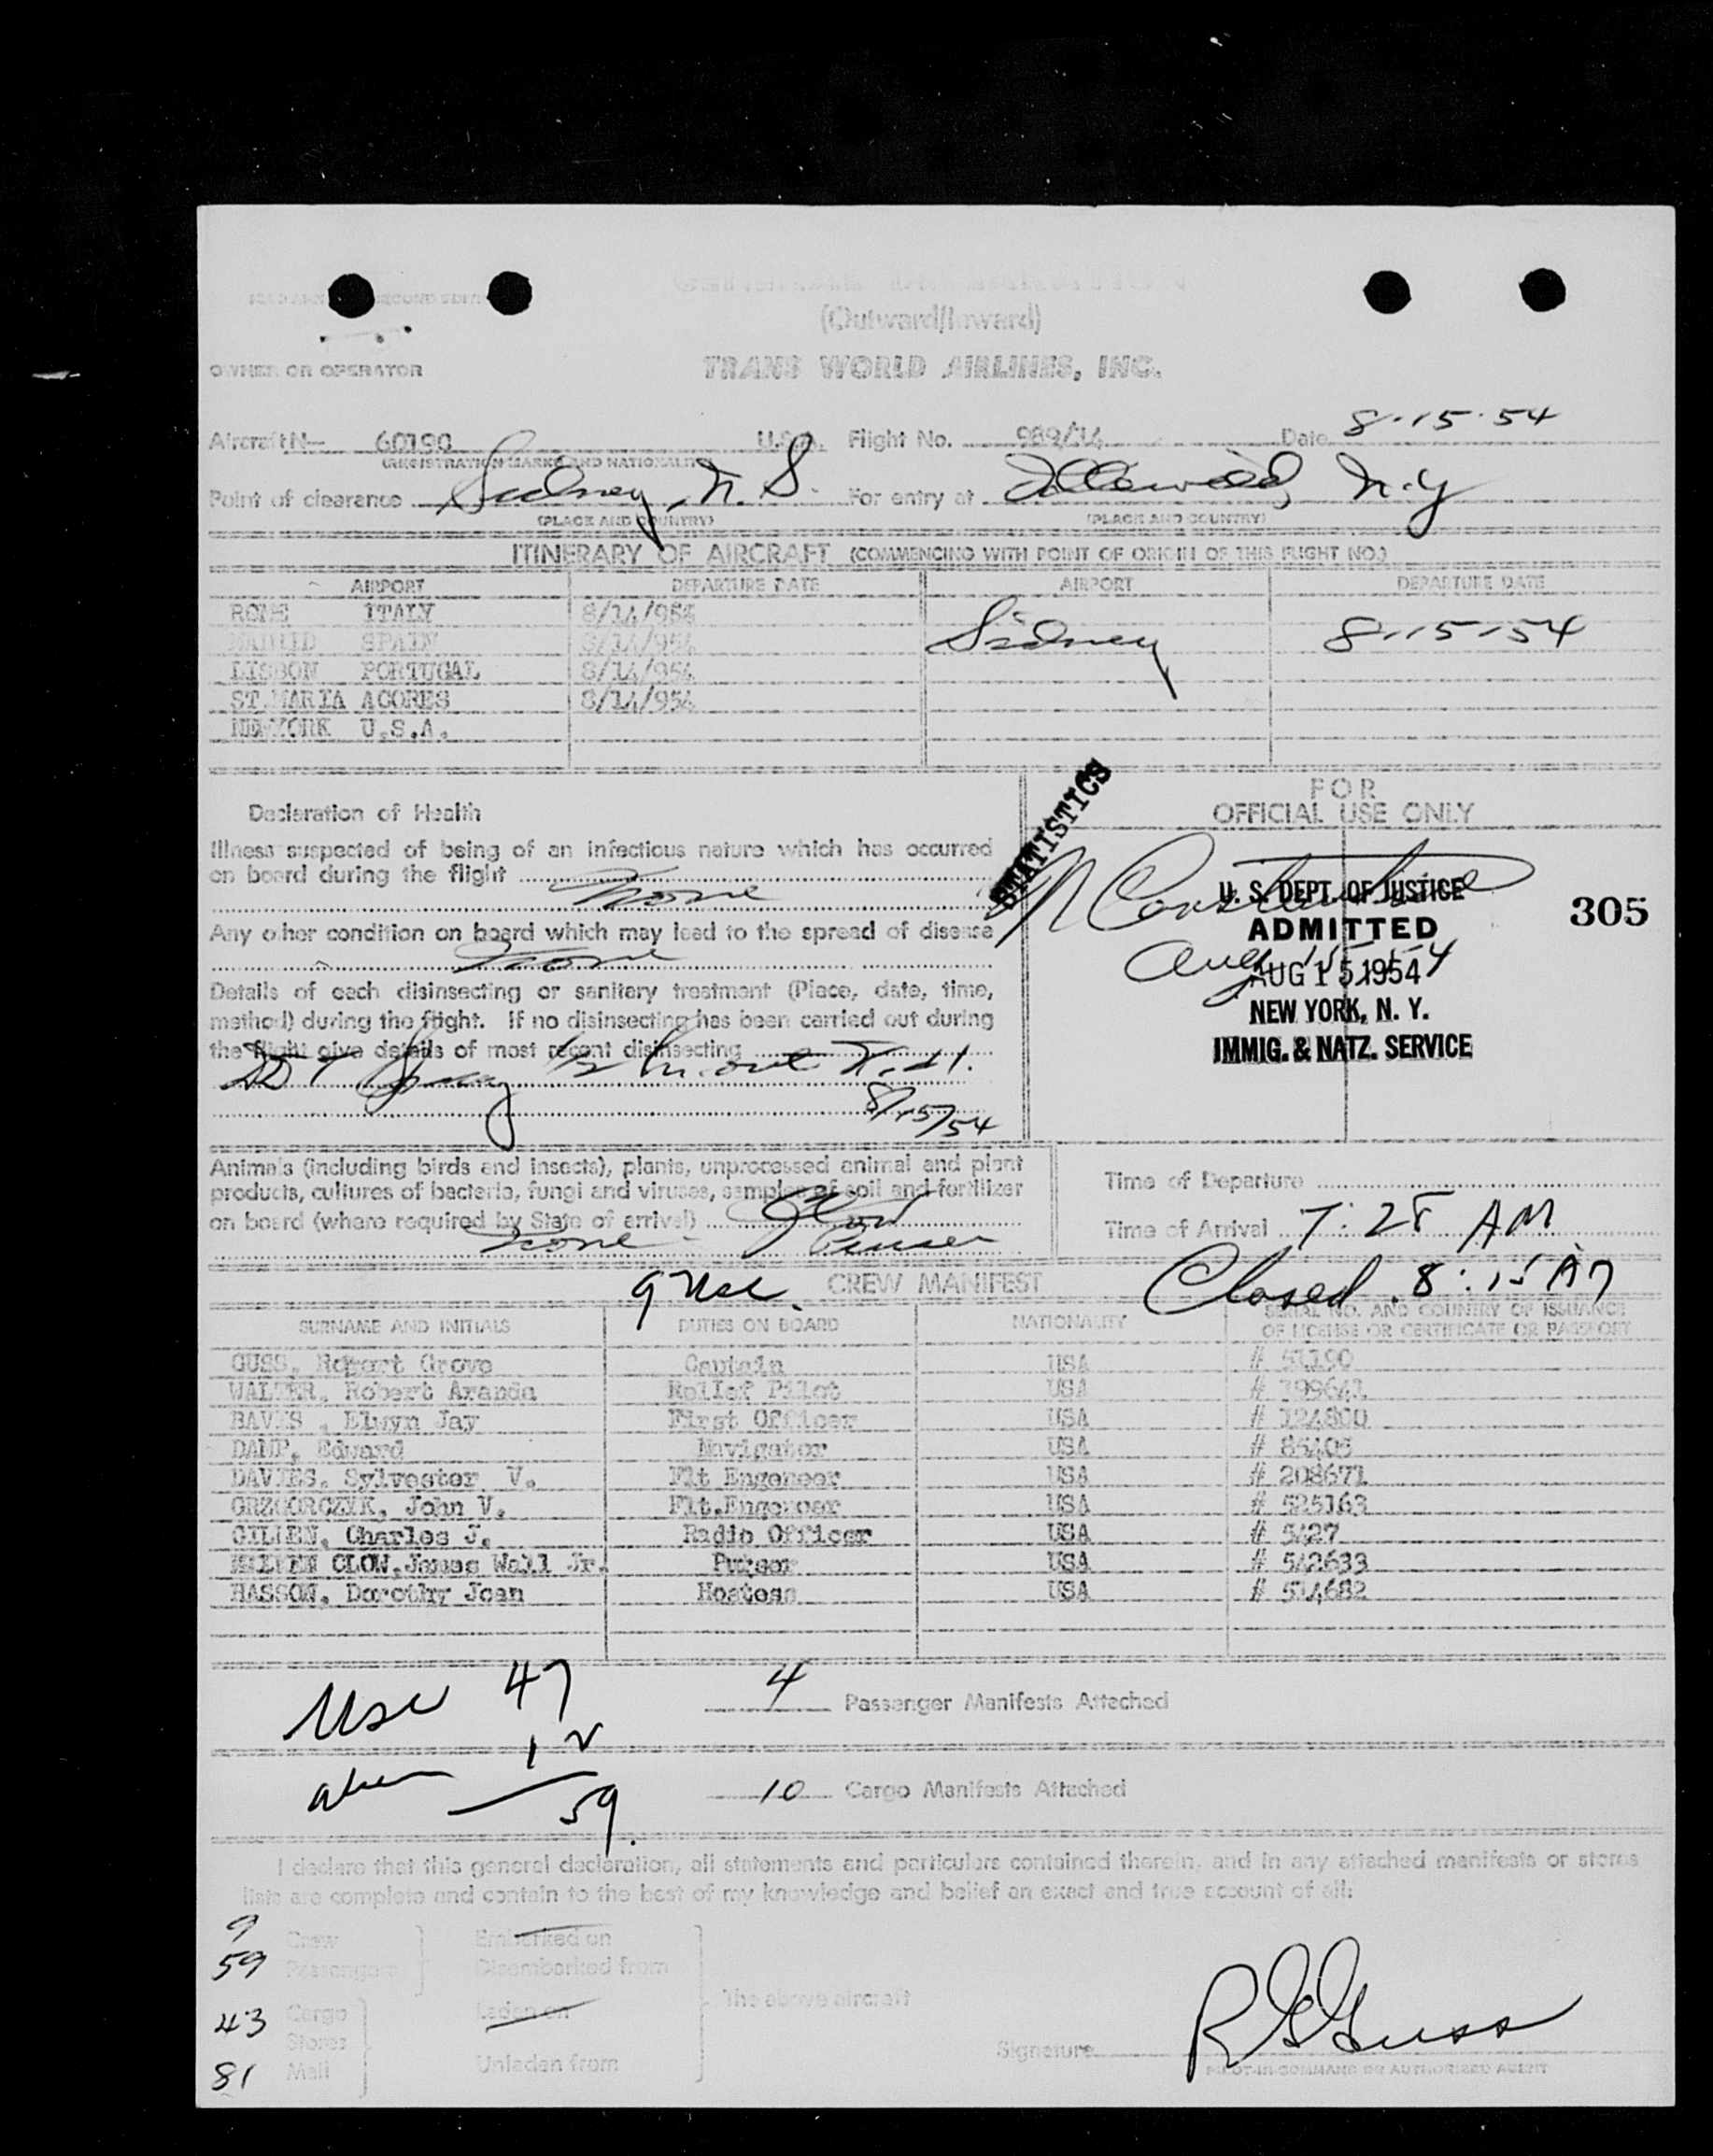 (Outward/Inward)
OWNER OR OPERATOR TRANS WORLD AIRLINES, INC.
Aircraft N— 60190 U.S.A. Flight No. 989/14 Date 8-15-54
(REGISTRATION MARKS AND NATIONALITY)
Point of clearance Sidney, N.S. For entry at Idlewild, N.Y
(PLACE AND COUNTRY) (PLACE AND COUNTRY)
ITINERARY OF AIRCRAFT (COMMENCING WITH POINT OF ORIGIN OF THIS FLIGHT NO.)
AIRPORT DEPARTURE DATE AIRPORT DEPARTURE DATE
ROME ITALY 8/14/954
MADRID SPAIN 8/14/954 Sidney 8-15-54
LISBON PORTUGAL 8/14/954
ST.MARIA ACORES 8/14/954
NEW YORK U.S.A.
STATISTICS
FOR
OFFICIAL USE ONLY
Declaration of Health
Illness suspected of being of an infectious nature which has occurred
on board during the flight None
Any other condition on board which may lead to the spread of disease
None
Details of each disinsecting or sanitary treatment (Place, date, time,
method) during the flight. If no disinsecting has been carried out during
the flight give details of most recent disinsecting
DDT Spray
8/15/54
U. S. DEPT. OF JUSTICE
305
ADMITTED
Aug 15-54
AUG 15 1954
NEW YORK, N. Y.
IMMIG. & NATZ. SERVICE
Animals (including birds and insects), plants, unprocessed animal and plant
products, cultures of bacteria, fungi and viruses, samples of soil and fertilizer
on board (where required by State of arrival)
None - Purser
Time of Departure
Time of Arrival 7:25 AM
Closed 8:15 AM
9 usc. CREW MANIFEST
SURNAME AND INITIALS DUTIES ON BOARD NATIONALITY SERIAL NO. AND COUNTRY OF ISSUANCE
OF LICENSE OR CERTIFICATE OR PASSPORT
GUSS, Robert Grove Captain USA # 51190
WALTER, Robert Aranda Relief Pilot USA # 199641
Elwyn Jay First Officer USA # 124800
DAMP, Edward Navigator USA # 85405
DAVIES, Sylvester V. Flt Engeneer USA # 208671
GRZGORCZYK, John V. Flt.Engeneer USA # 525163
GILLEN, Charles J. Radio Officer USA # 5427
CLOW, James Wall Jr. Purser USA # 542633
HASSON, Dorothy Joan Hostess USA # 514682
Usc 47
4 Passenger Manifests Attached
alien 12
10 Cargo Manifests Attached
59
I declare that this general declaration, all statements and particulars contained therein, and in any attached manifests or stores
lists are complete and contain to the best of my knowledge and belief an exact and true account of all:
9 Crew Embarked on
59 Passengers Disembarked from
The above aircraft
43 Cargo Laden on
Stores
81 Mail Unladen from
Signature R G Guss
PILOT-IN-COMMAND OR AUTHORISED AGENT